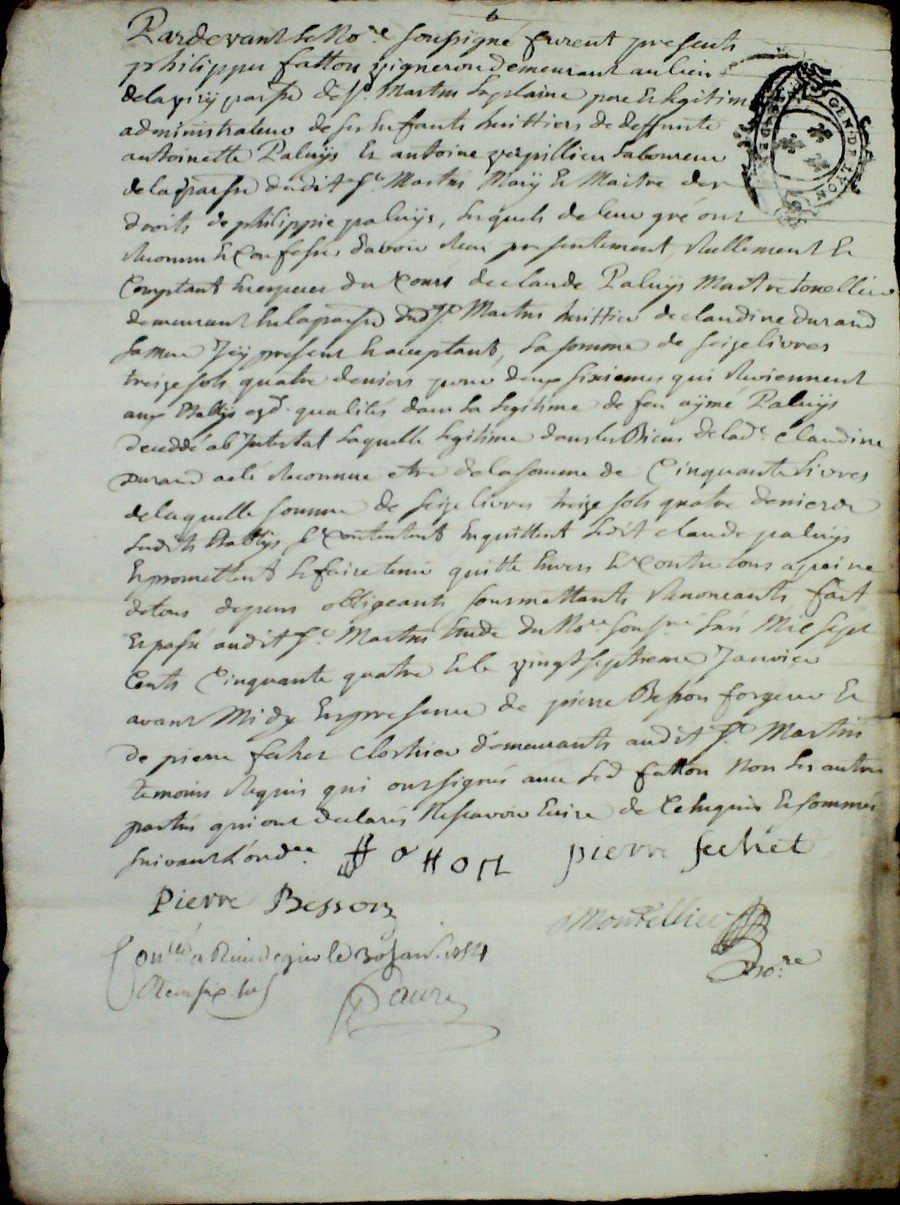 Pardevant le No.re soussigné furent presents
philippe fatton vigneron demeurant au lieu
de la parsse de St. Martin Laplaine pere & legitime
administrateur de ses Enfants heritiers de deffunte
antoinette Paluys & antoine verpillieu laboureur
de la parsse dudit St. Martin Mary & Maitre des
droits de philippie paluys, lesquels de leur gré ont
Reconnu & Confessés d'avoir Receu presentement, Reellement &
Comptant En especes du Cours de claude Paluys Maitre tonellier
demeurant En la parsse dudt St. Martin heritier de claudine durand
sa mere Icy present & acceptant, la somme de seize livres
treize sols quatre deniers pour deux sixiemes qui Reviennent
aux Etablys esd. qualités dans la legitime de feu aymé Paluys
decedé ab Intestat laquelle legitime dans les Biens de lad.e claudine
Durand a eté Reconnue etre de la somme de Cinquante Livres
de laquelle somme de seize livres treize sols quatre deniers
lesdits Etablys se Contentent En quittent ledit claude paluys
& promettent le faire tenir quitte Envers & Contre tous a peine
de tous depens obligeants, soumettants Renonceants fait
& passé audit St. Martin Etude du No.re sous.né L'an Mil sept
Cents Cinquante quatre & le vingt septieme Janvier
avant Midy En presence de pierre Besson forgeur &
de pierre fechet Clostrier demeurants audit St. Martin
temoins Requis qui ont signés avec led fatton Non les autres
parties qui ont declarés Ne scavoir Ecrire de Ce Enquis & sommés
suivant L'ord.ce fatton pierre fechet
Pierre Besson
Montellier
No.re
Con.lé a Rivedegier le 30 Janv. 1754
Reçu six sols
GEN DE LYON